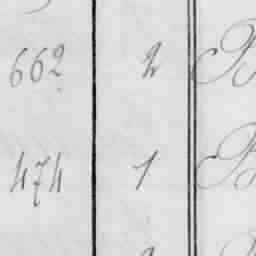 662 2
474 1